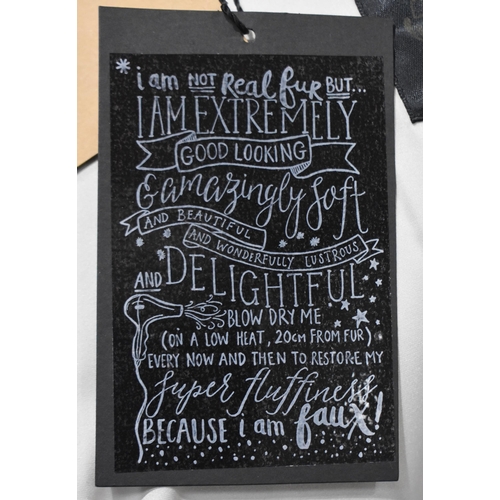 *i am NOT Real fur BUT...
I AM EXTREMELY
GOOD LOOKING
& amazingly soft
AND BEAUTIFUL
AND WONDERFULLY LUSTROUS
AND DELIGHTFUL
BLOW DRY ME
(ON A LOW HEAT, 20CM FROM FUR)
EVERY NOW AND THEN TO RESTORE MY
super fluffiness
BECAUSE i am faux!